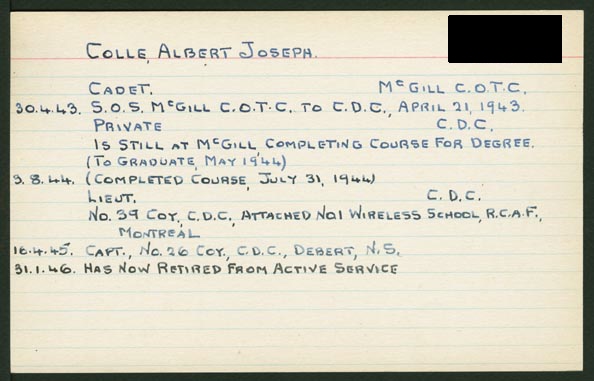 COLLE, ALBERT JOSEPH.
CADET. McGILL C.O.T.C.
30.4.43. S.O.S. McGILL C.O.T.C. TO C.D.C., APRIL 21, 1943.
PRIVATE C.D.C.
IS STILL AT McGILL, COMPLETING COURSE FOR DEGREE.
(TO GRADUATE, MAY 1944)
3.8.44. (COMPLETED COURSE, JULY 31, 1944)
LIEUT. C.D.C.
No. 39 COY, C.D.C., ATTACHED No1 WIRELESS SCHOOL, R.C.A.F.,
MONTREAL
16.4.45. CAPT., No. 26 COY., C.D.C., DEBERT, N.S.
31.1.46. HAS NOW RETIRED FROM ACTIVE SERVICE